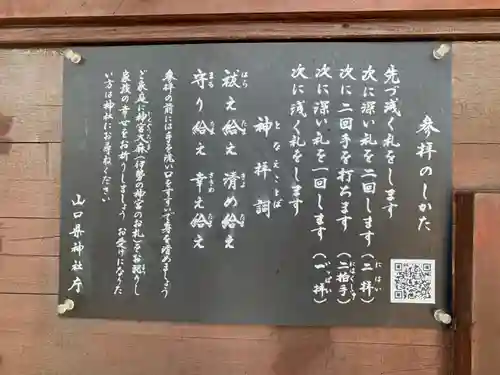 参拝のしかた
先づ浅く礼をします
次に深い礼を二回します（二拝）
にはい
次に二回手を打ちます（二拍手）
にはくしゅ
次に深い礼を一回します（一拝）
いっぱい
次に浅く礼をします
神拝詞
となえことば
祓え給え 清め給え
はら たま きよ たま
守り給え 幸え給え
まも たま さきわ たま
参拝の前には手を洗い口をすすいで身を清めましょう
ご家庭に神宮大麻（伊勢の神宮のお札）をお祀りし
家族の幸せをお祈りしましょう お受けになりた
い方は神社にお尋ねください
山口県神社庁